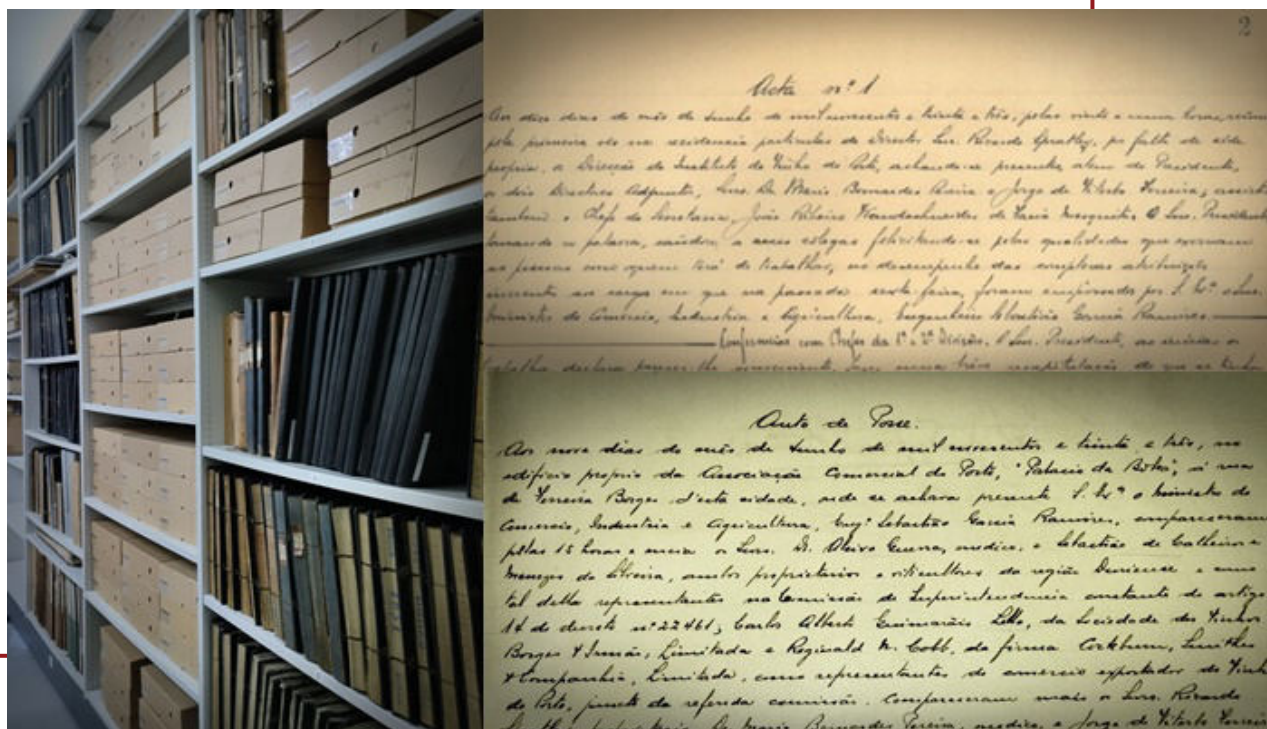 2
Acta nº 1
Aos doze dias do mês de Junho de mil novecentos e trinta e três, pelas vinte e uma horas, reuniu
pela primeira vez na residencia particular do Director Snr. Ricardo Spratley, por falta de séde
propria, a Direcção do Instituto do Vinho do Porto, achando-se presentes alem do Presidente,
os dois Directores Adjuntos, Snrs. Dr. Mario Bernardes Pereira e Jorge de Viterbo Ferreira; assistiu
tambem o Chefe da Secretaria, João Ribeiro de Faria Mesquita. O Snr. Presidente
tomando a palavra, saúdou a seus colegas felicitando-se pelas qualidades que exornam
as pessoas com quem terá de trabalhar, no desempenho das complexas atribuições
inerentes ao cargo em que na passada sexta-feira, foram empossados por S. Exª o Snr.
Ministro do Comercio, Industria e Agricultura, Engenheiro Sebastião Garcia Ramires.
Conferencias com Chefes da 1ª e 2ª Divisão. O Snr. Presidente, ao iniciar os
trabalhos declara
Auto de Posse.
Aos nove dias do mês de Junho de mil novecentos e trinta e três, no
edificio proprio da Associação Comercial do Porto, "Palacio da Bolsa", á rua
de Ferreira Borges d'esta cidade, onde se achava presente S. Exª o Ministro do
Comercio, Industria e Agricultura, Engº Sebastião Garcia Ramires, compareceram
pelas 15 horas e meia os Snrs. Dr. Guerra, medico, e Sebastião de Calheiros e
Menezes da Silveira, ambos proprietarios e viticultores da região Duriense e como
tal della representantes na Comissão de Superintendencia constante do artigo
14 do decreto nº 22461; Carlos Alberto Guimarães Lello, da Sociedade dos Vinhos
Borges & Irmão, Limitada e Reginald M. Cobb, da firma Cockburn, Smithes
& Companhia, Limitada, como representantes do comercio exportador do Vinho
do Porto, junto da referida comissão. Compareceram mais os Snrs. Ricardo
Spratley, Dr. Mario Bernardes Pereira, medico, e Jorge de Viterbo Ferreira